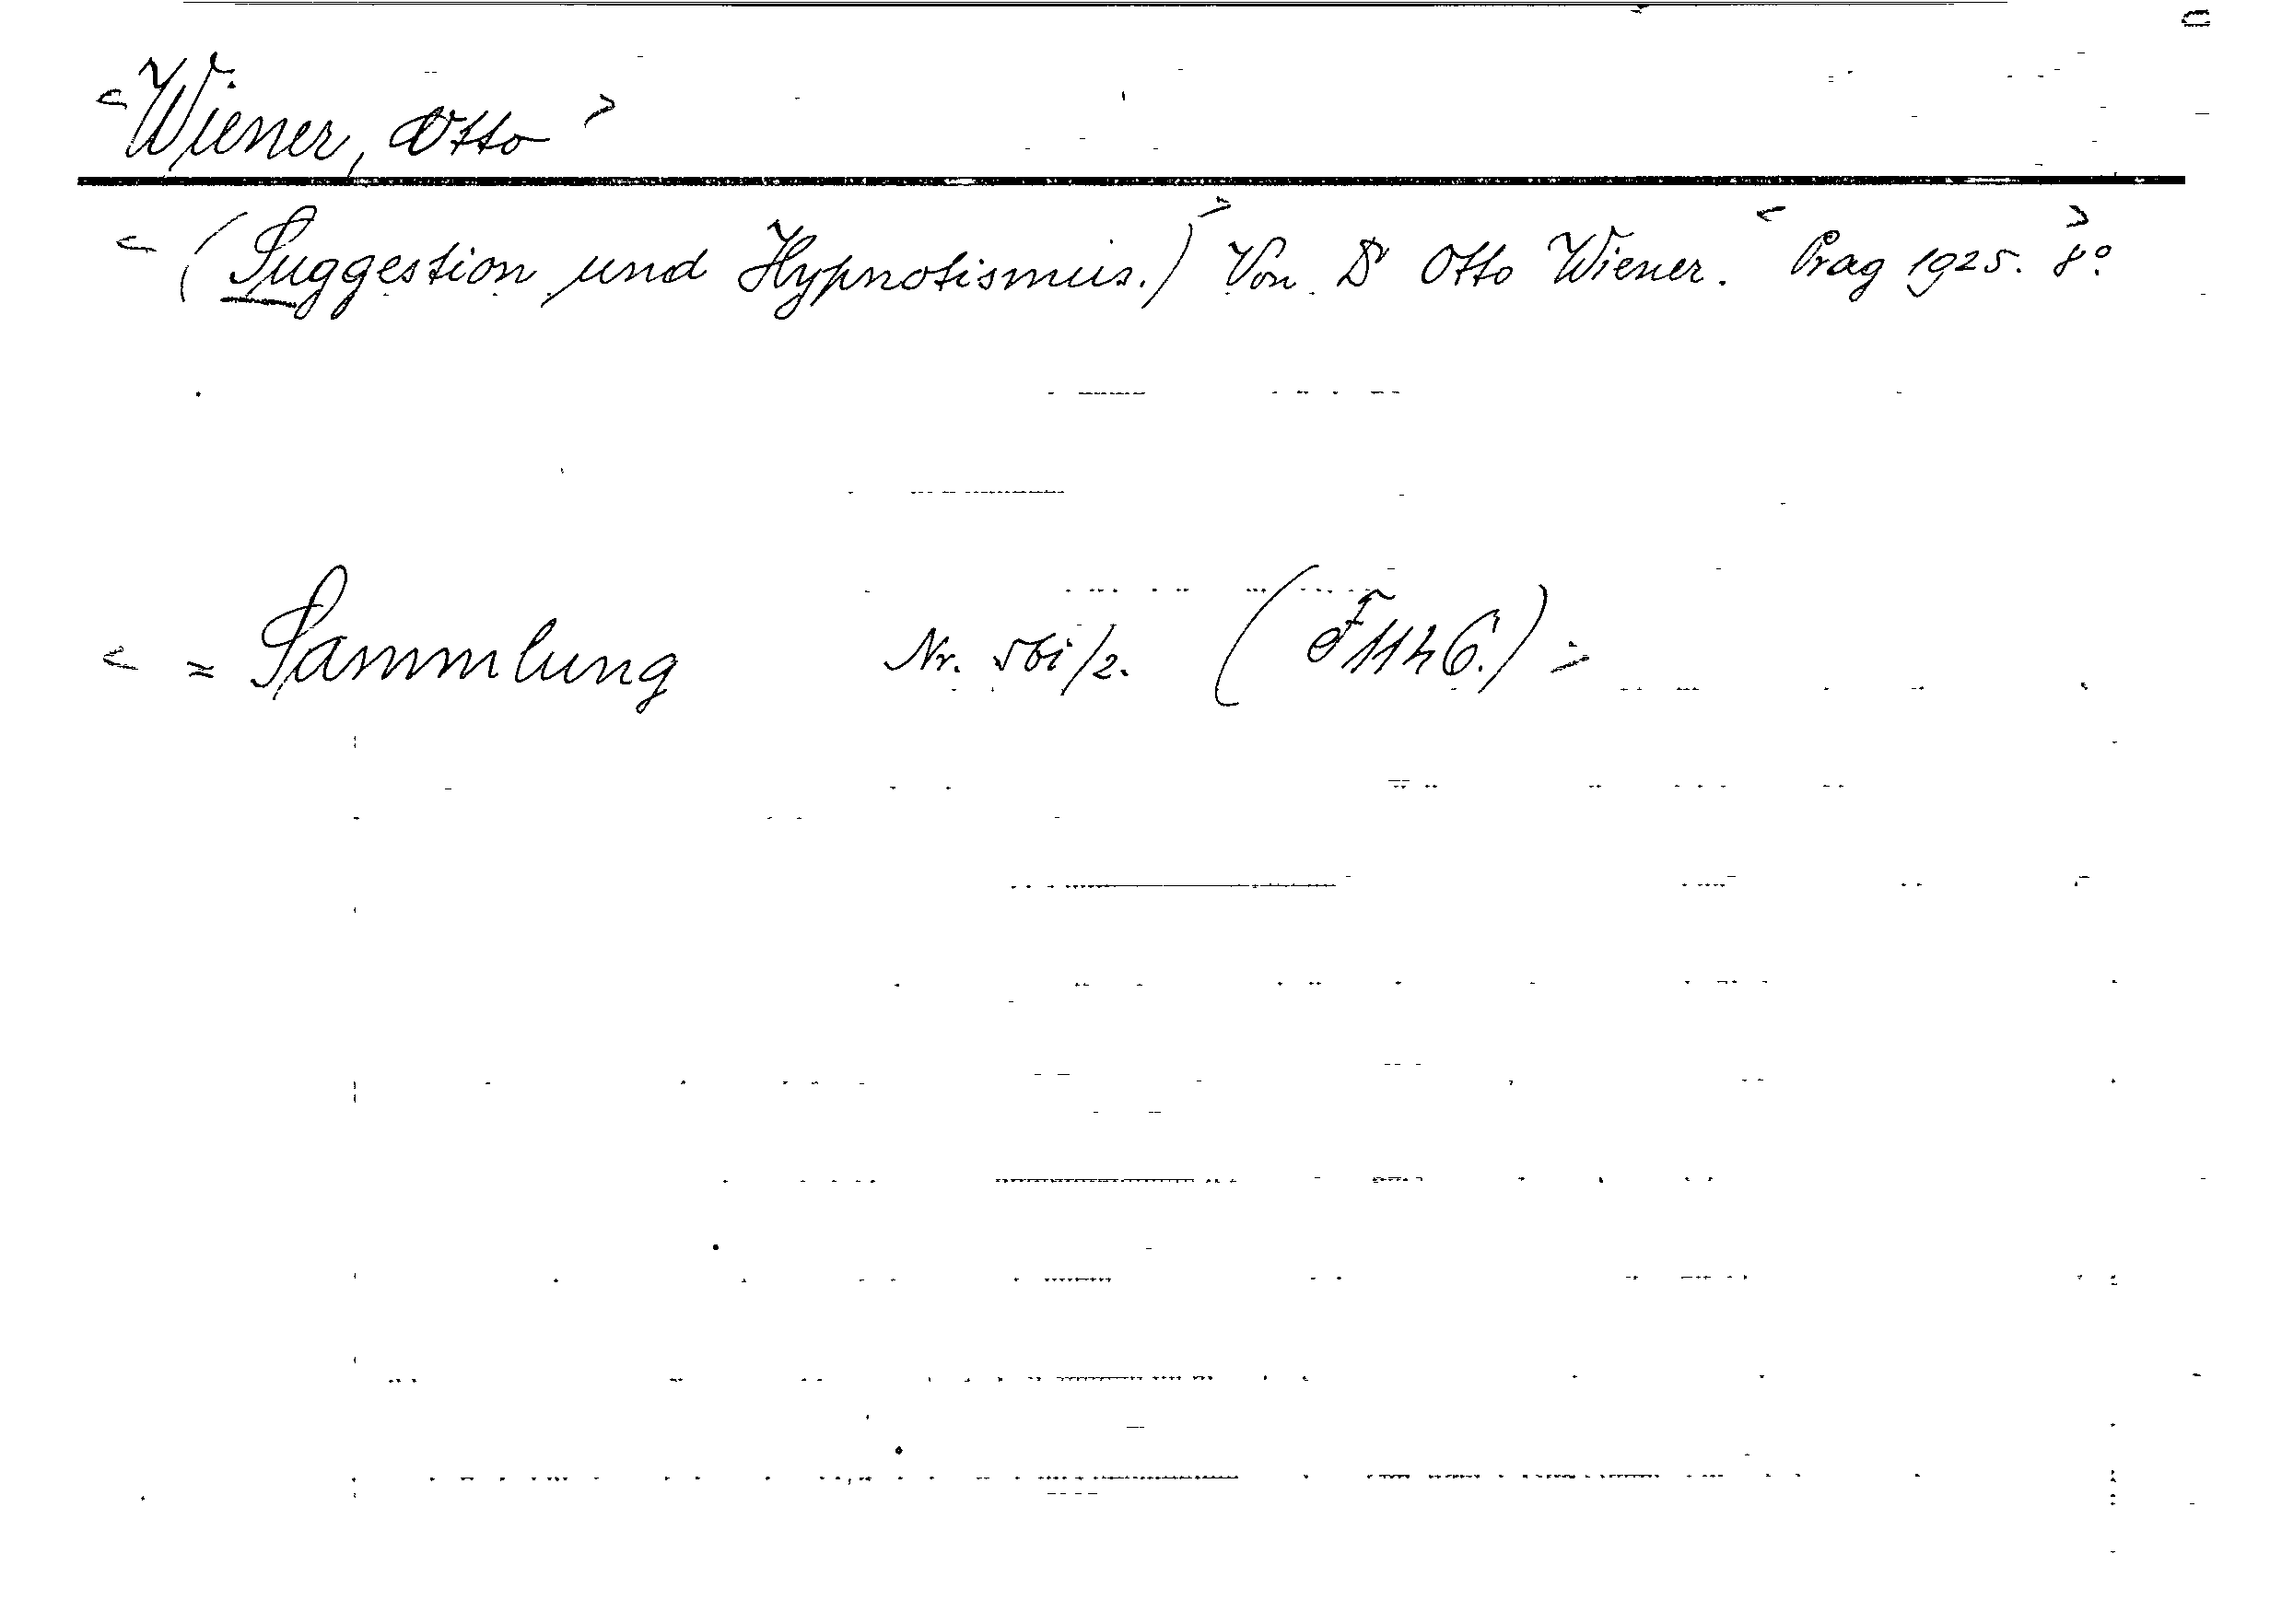 <Wiener, Otto>
<(Suggestion und Hypnotismus.)> Von Dr Otto Wiener. <Prag 1925. 8°>
< = Sammlung Nr. 561/2. (F11h6.)>